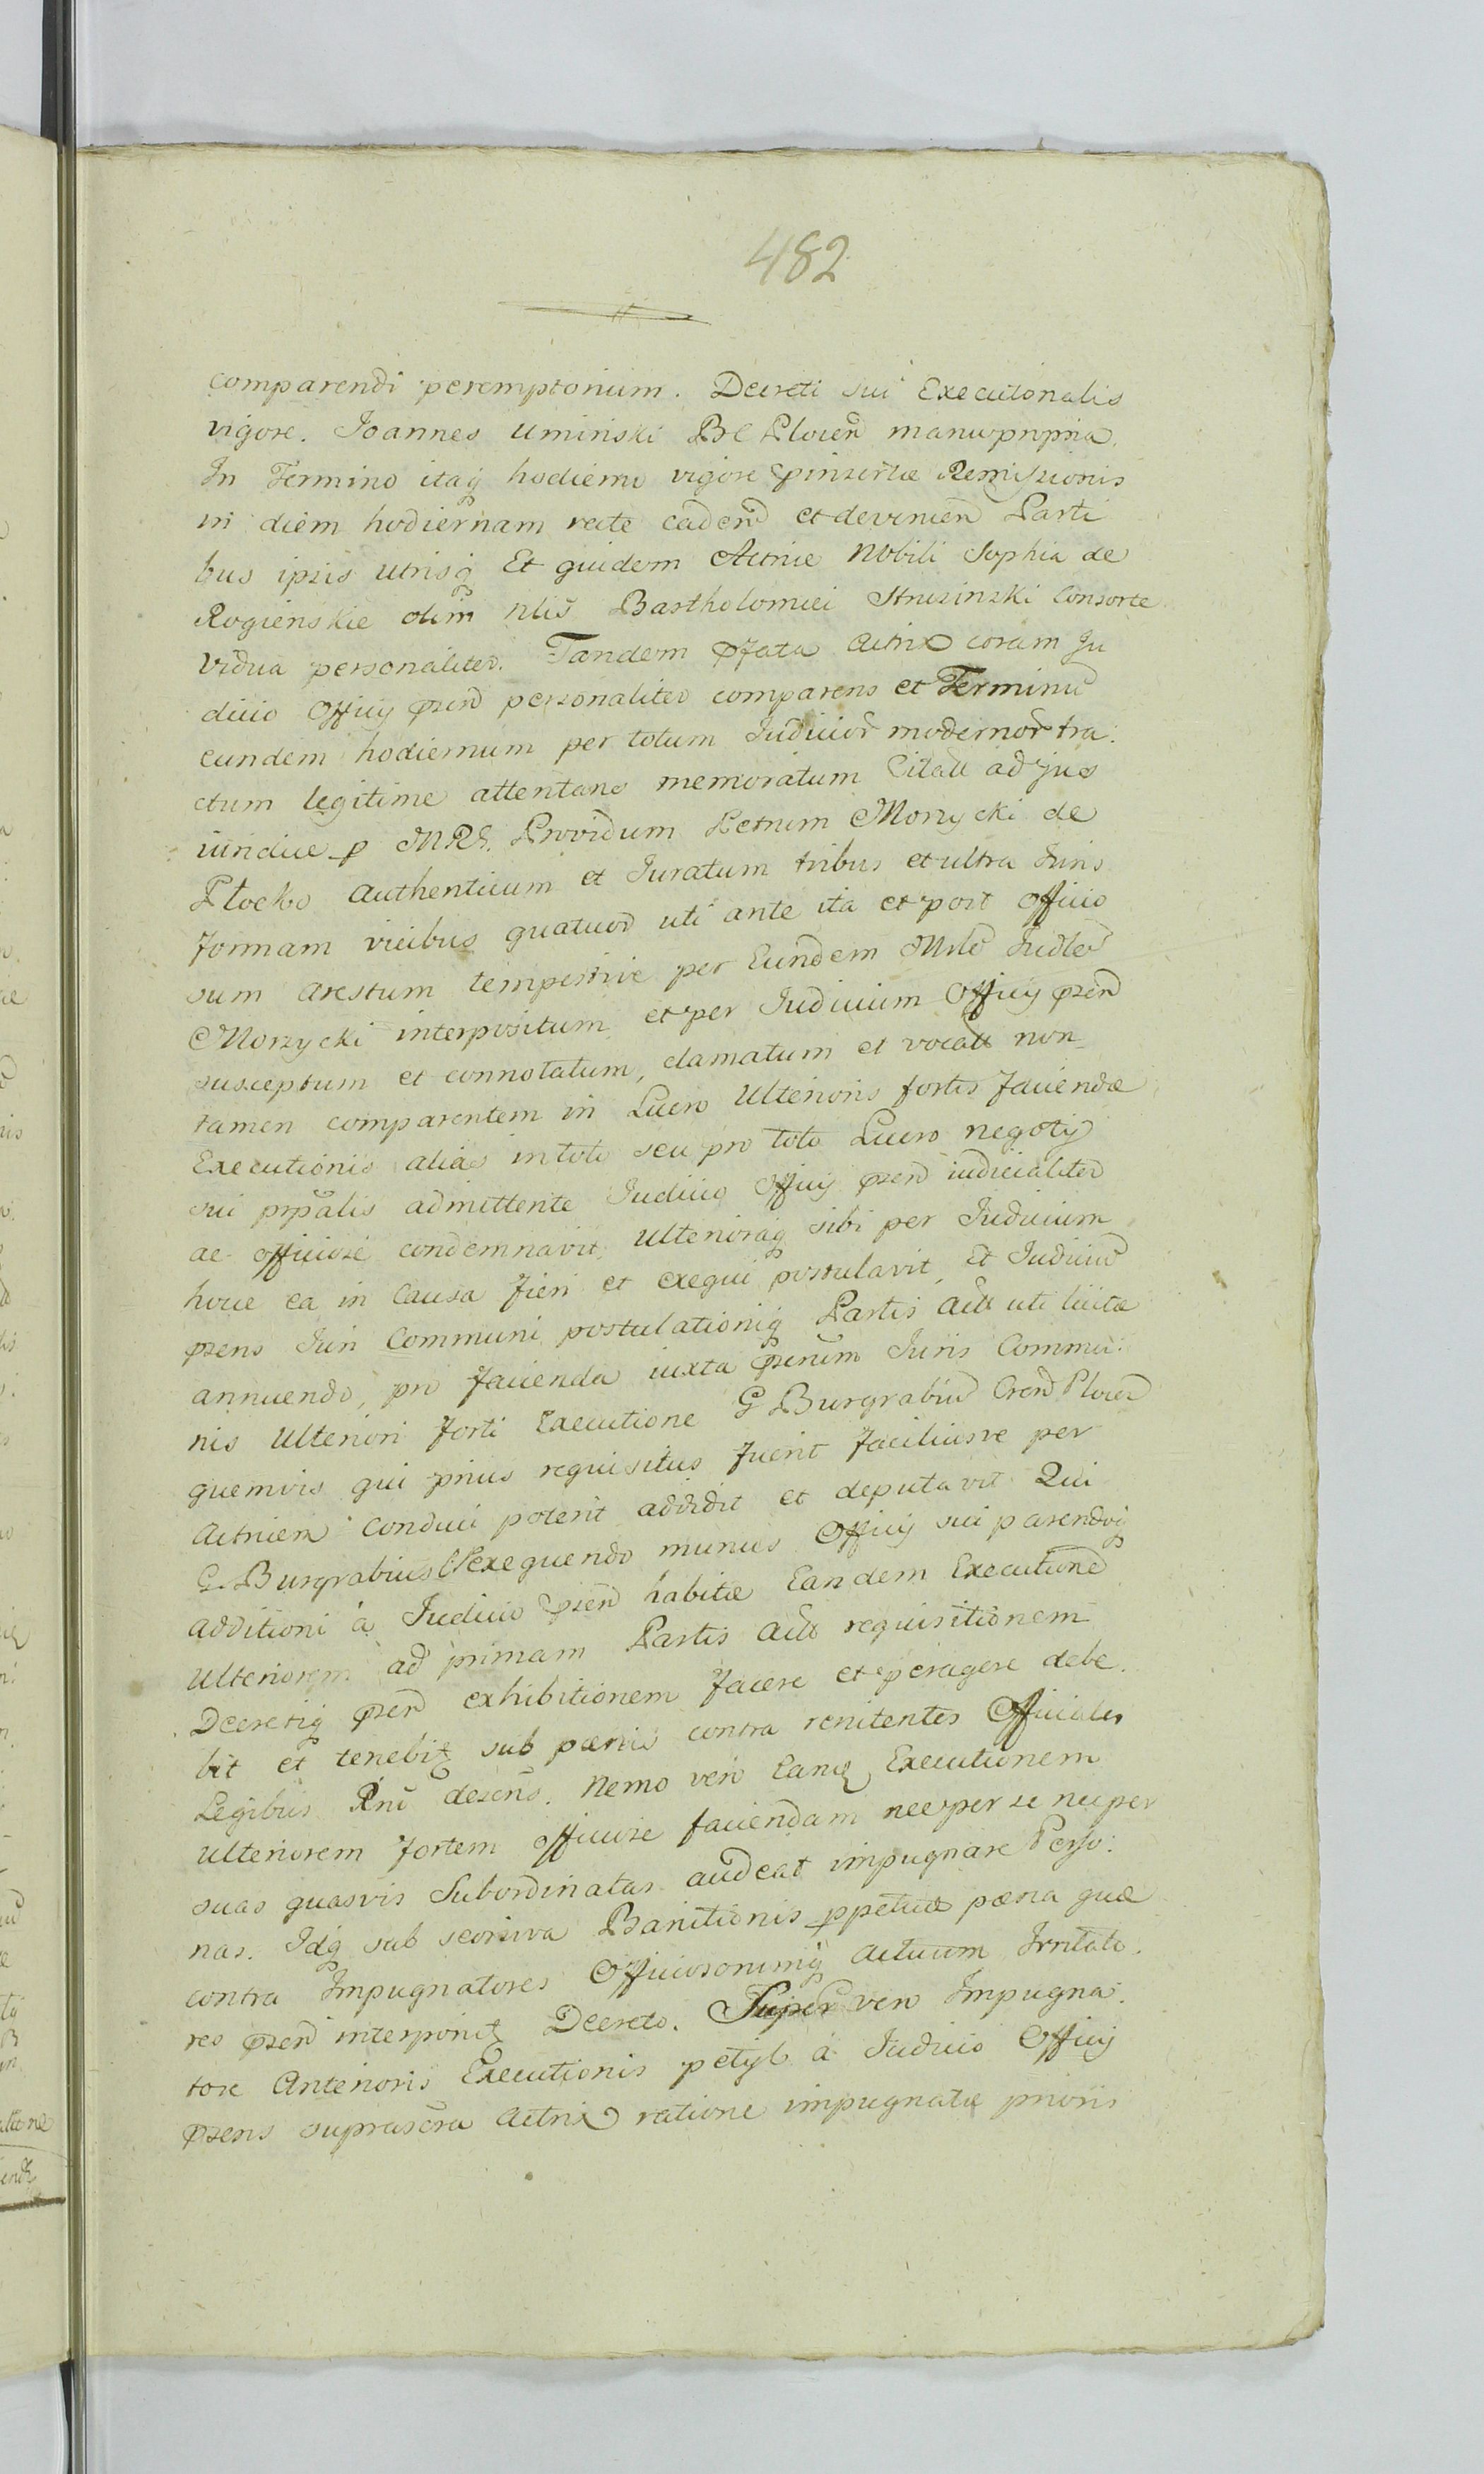 482
comparendi peremptorium. Decreti sui Executionalis
vigore. Joannes Uminski BC Plocen manu propria.
In Termino itaq hodierno vigore pinsertæ Remissionis
in diem hodiernam recte caden et devenien Parti
bus ipsis utrisq Et quidem Actrice Nobili Sophia de
Rogienskie olim Nlis Bartholomiei Strusinski Consorte
vidua personaliter. Tandem pfata Actrix coram Ju
dicio Officij psen personaliter comparens et Terminu
eundem hodiernum per totum Judicior modernor tra:
ctum legitime attentans memoratum Citatt ad jus
iuridice p MRG. Providum Petrum Morzycki de
Plocko Authenticum et Juratum tribus et ultra Juris
formam vicibus quatuor uti ante ita et post officio
sum arestum tempestive per Eundem Mnle Judle
Morzycki interpositum et per Judicium Officij psen
susceptum et connotatum, clamatum et vocatt non
tamen comparentem in Lucro Ulterioris fortis faciendæ
Executionis alias in toto seu pro toto Lucro negotij
sui prpalis admittente Judicio Officij psen iudicialiter
ac officiose condemnavit, ulterioraq sibi per Judicium
hocce ea in Causa fieri et exequi postulavit, et Judiciu
psens Juri Communi postulationiq Partis Act uti licitæ
annuendo, pro facienda iuxta psenum Juris Commu:
nis Ulteriori forti Executione G Burgrabiu Cren Plocen
quemvis qui prius requisitus fuerit faciliusve per
Actricem conduci poterit addidit et deputavit Qui
G. Burgrabius exequendo munus Officij sui parendoq
additioni a Judicio psen habitæ Eandem Executione
Ulteriorem ad primam Partis Act requisitionem
Decretiq psen exhibitionem facere et peragere debe.
bit et tenebit sub pænis contra renitentes Officiales
Legibus Rni descris. Nemo vero Eand Executionem
ulteriorem fortem officiose faciendam nec per se nec per
suas quasvis Subordinatas audeat impugnare Perso:
nas. Idq sub scorsiva Banitionis ppetuæ pæna quæ
contra Impugnatores Officiosorumq actuum Irritato.
res psen interponit Decreto. Super vero Impugna:
tore Anterioris Executionis petijt a Judicio Officij
psens suprascra Actrix ratione impugnatæ prioris